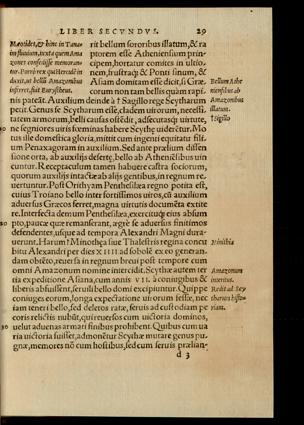 LIBER SECVNDVS. 29
Mæotides, & hinc in Tana-
in fluuium, iuxta quem Ama
zones consedisse memoran-
tur. Porrò rex qui Herculē in
duxit, ut bellū Amazonibus
inferret, fuit Eurystheus.
rit bellum sororibus illatum, & ra
ptorem esse Atheniensium prin-
cipem, hortatur comites in ultio-
nem, frustraq; & Ponti sinum, &
Asiam domitam esse dicit, si Græ-
corum non tam bellis quàm rapi-
nis pateat. Auxilium deinde à † Sagillo rege Scytharum
petit. Genus se Scytharum esse, cladem uirorum, necessi-
tatem armorum, belli causas ostēdit, adsecutasq; uirtute,
ne segniores uiris fœminas habere Scythę uiderētur. Mo
tus ille domestica gloria, mittit cum ingenti equitatu filiū
Penaxagoram in auxilium. Sed ante prælium dissen
sione orta, ab auxilijs desertę, bello ab Atheniēsibus uin
cuntur. Receptaculum tamen habuere castra sociorum,
quorum auxilio intactæ ab alijs gentibus, in regnum re-
uertuntur. Post Orithyam Penthesilea regno potita est,
cuius Troiano bello inter fortissimos uiros, cū auxilium
aduersus Græcos ferret, magna uirtutis documēta extite
re. Interfecta demum Penthesilea, exercituq; eius absum
pto, paucæ quæ remanserant, ægrè se aduersus finitimos
defendentes, usque ad tempora Alexandri Magni dura-
uerunt. Harum † Minothęa siue Thalestris regina concu
bitu Alexandri per dies XIIII ad sobolē ex eo generan-
dam obtēto, reuersa in regnum breui post tempore cum
omni Amazonum nomine intercidit. Scythæ autem ter
tia expeditione Asiana, cum annis VII. à coniugibus &
liberis abfuissent, seruili bello domi excipiuntur. Quippe
coniuges eorum, longa expectatione uirorum fessæ, nec
iam teneri bello, sed deletos ratæ, seruis ad custodiam pe
coris relictis nubūt, qui reuersos cum uictoria dominos,
uelut aduenas armati finibus prohibent. Quibus cum ua
ria uictoria fuisset, admonētur Scythæ mutare genus pu-
gnæ, memores nō cum hostibus, sed cum seruis prælian-
d 3
Bellum Athe
niensibus ab
Amazonibus
illatum.
† Sagillo
Amazonum
interitus.
Redit ad Scy
tharum histo-
riam.